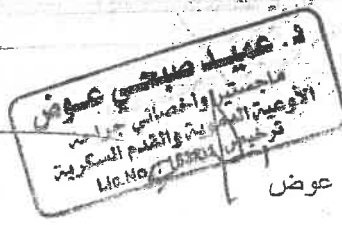 د. عميد صبحي عوض
ماجستير واخصائي جراحة
الأوعية الدموية والقدم السكرية
ترخيص
Lic.No
عوض